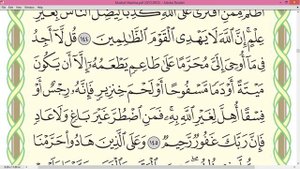 أَظْلَمُ مِمَّنِ ٱفْتَرَىٰ عَلَى ٱللَّهِ كَذِبًا لِّيُضِلَّ ٱلنَّاسَ بِغَيْرِ
عِلْمٍ إِنَّ ٱللَّهَ لَا يَهْدِى ٱلْقَوْمَ ٱلظَّٰلِمِينَ ١٤٤ قُل لَّآ أَجِدُ
فِى مَآ أُوحِىَ إِلَىَّ مُحَرَّمًا عَلَىٰ طَاعِمٍ يَطْعَمُهُۥٓ إِلَّآ أَن يَكُونَ
مَيْتَةً أَوْ دَمًا مَّسْفُوحًا أَوْ لَحْمَ خِنزِيرٍ فَإِنَّهُۥ رِجْسٌ أَوْ
فِسْقًا أُهِلَّ لِغَيْرِ ٱللَّهِ بِهِۦ فَمَنِ ٱضْطُرَّ غَيْرَ بَاغٍ وَلَا عَادٍ
فَإِنَّ رَبَّكَ غَفُورٌ رَّحِيمٌ ١٤٥ وَعَلَى ٱلَّذِينَ هَادُوا۟ حَرَّمْنَا